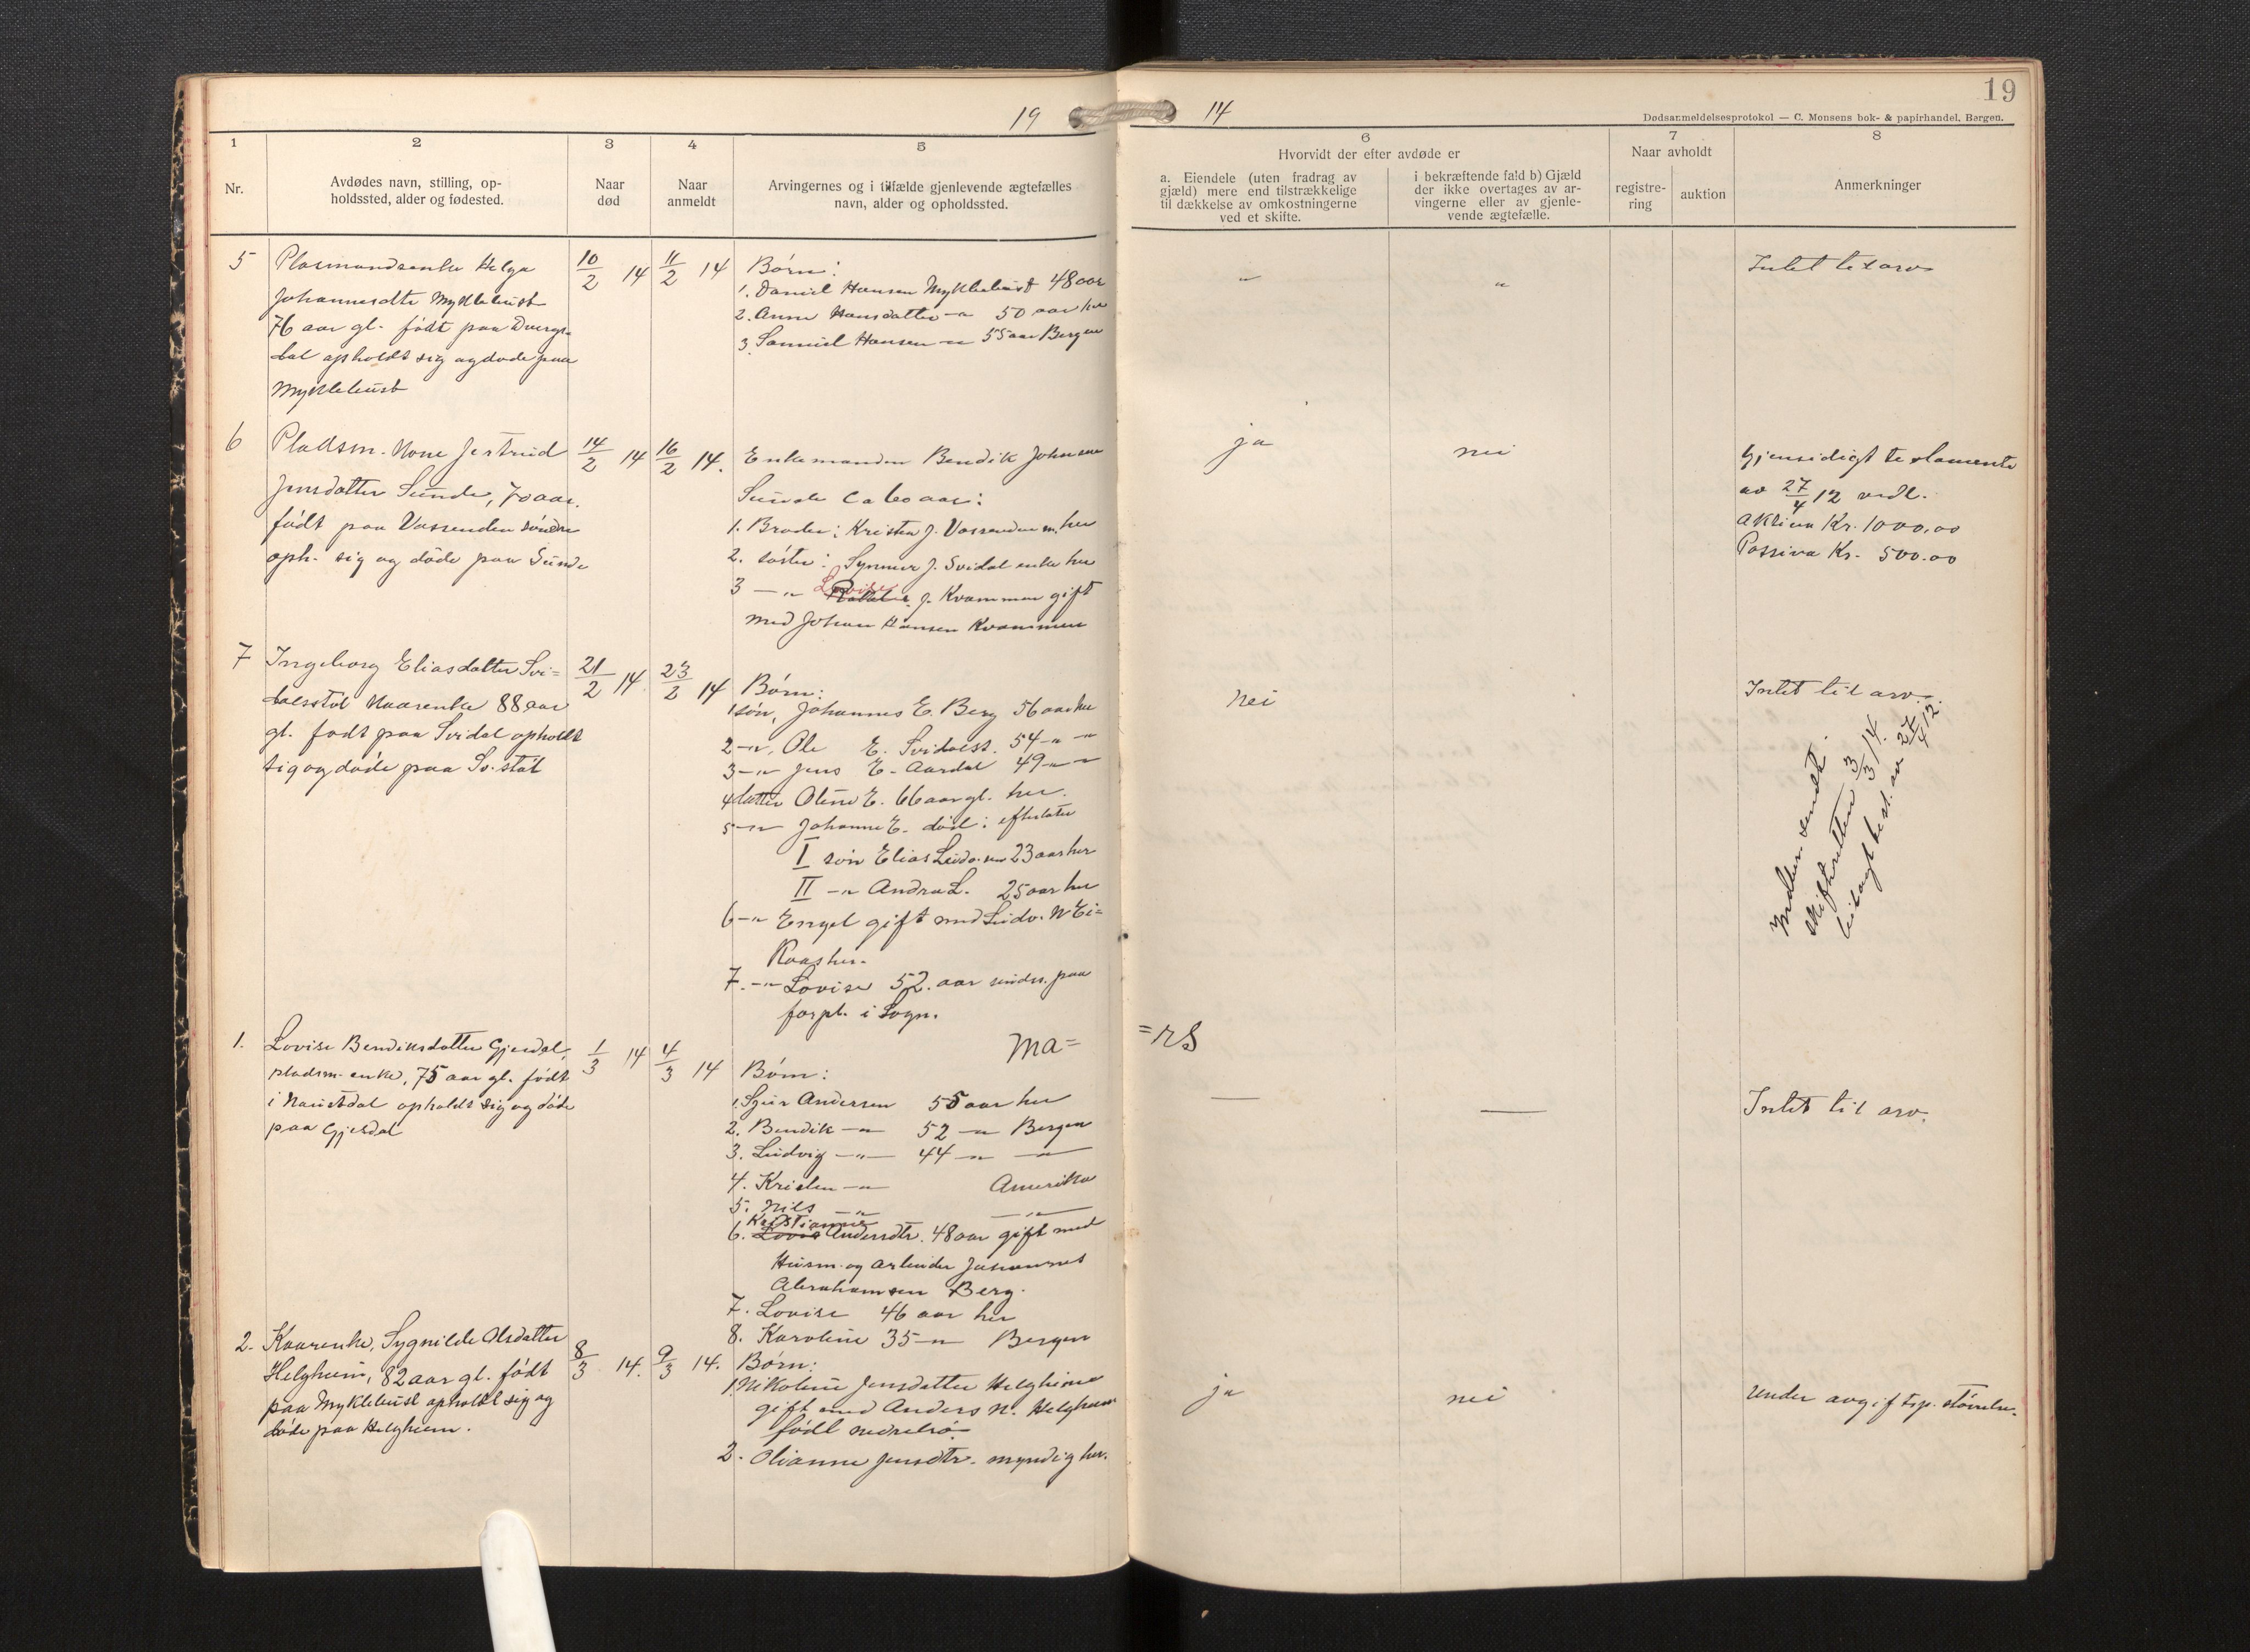 19
14
19
Dødsanmeldelsesprotokol — C. Monsens bok- & papirhandel, Bergen.
1
2
3
4
5
6
7
8
Nr.
Avdødes navn, stilling, op-
holdssted, alder og fødested.
Naar
død
Naar
anmeldt
Arvingernes og i tilfælde gjenlevende ægtefælles
navn, alder og opholdssted.
Hvorvidt der efter avdøde er
a. Eiendele (uten fradrag av
gjæld) mere end tilstrækkelige
til dækkelse av omkostningerne
ved et skifte.
i bekræftende fald b) Gjæld
der ikke overtages av ar-
vingerne eller av gjenle-
vende ægtefælle.
Naar avholdt
registre-
ring
auktion
Anmerkninger
5
Plasmandsenke Helga
Johannesdtr Myklebust
76 aar gl. født paa Dvergs-
dal opholdt sig og døde paa
Myklebust
10/2 14
11/2 14
Børn:
1. Daniel Hansen Myklebust 48 aar
2. Anne Hansdatter -"- 50 aar her
3. Samuel Hansen -"- 55 aar Bergen
"
"
Intet til arv
6
Pladsm. Kone Jertrud
Jensdatter Sunde, 70 aar.
født paa Vassenden søndre
oph. sig og døde paa Sunde
14/2 14
16/2 14.
Enkemanden Bendik Johnsen
Sunde ca 60 aar:
1. Broder: Kristen J. Vassenden m. her
2. søster: Synneve J. Svidal enke her
3 -"- Lovise J. Kvammen gift
med Johan Hansen Kvammen
ja
nei
Gjensidigt testamente
av 27/4 12 vedl.
Aktiva Kr. 1000,00
Passiva Kr. 500.00
7
Ingeborg Eliasdatter Svi=
dalsstøl Kaarenke 88 aar
gl. født paa Svidal opholdt
sig og døde paa Sv.støl
21/2 14.
23/2 14
Børn:
1 søn, Johannes E. Berg 56 aar her
2 -"-, Ole E. Svidalsst. 54 -"- -"-
3 -"- Jens E. Aardal 49 -"- -"-
4 datter Oline E. 66 aar gl. her.
5 -"- Johanne E. død: efterlater
I søn Elias Ludv.sen 23 aar her
II -"- Andrea L. 25 aar her
6 -"- Engel gift med Ludv. N Ei=
kaas her.
7. -"- Lovise 52. aar sindss. paa
forpl. i Sogn.
nei
Intet til arv.
Indber. sendt
skifteretten 3/3 14.
bilagt test. av 27/4 12.
Ma=
=rs
1.
Lovise Bendiksdatter Gjesdal,
pladsm. enke, 75 aar gl. født
i Naustdal opholdt sig og døde
paa Gjesdal
1/3 14
4/3 14
Børn:
1. Sjur Andersen 55 aar her
2. Bendik -"- 52 -"- Bergen
3. Ludvig -"- 44 -"- -"-
4. Kristen -"- Amerika
5. Nils -"- -"-
Kristianne
6. Lovise Andersdtr. 48 aar gift med
Husm. og arbeider Johannes
Abrahamsen Berg.
7. Lovise 46 aar her
8. Karoline 35 -"- Bergen
—
—
Intet til arv.
2.
Kaarenke, Sygnilde Olsdatter
Helgheim, 82 aar gl. født
paa Myklebust opholdt sig og
døde paa Helgheim.
8/3 14.
9/3 14.
Børn:
1. Nikoline Jensdatter Helgheim
gift med Anders N. Helgheim
født
2. Olianne Jensdtr. myndig her.
ja
nei
Under avgiftsp. størrelse.